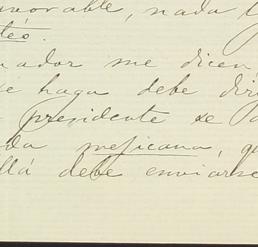 favorable, nada
teó.
nador me dicen
se haga debe diri
presidente se
da mejicana, q
llá debe enviarse